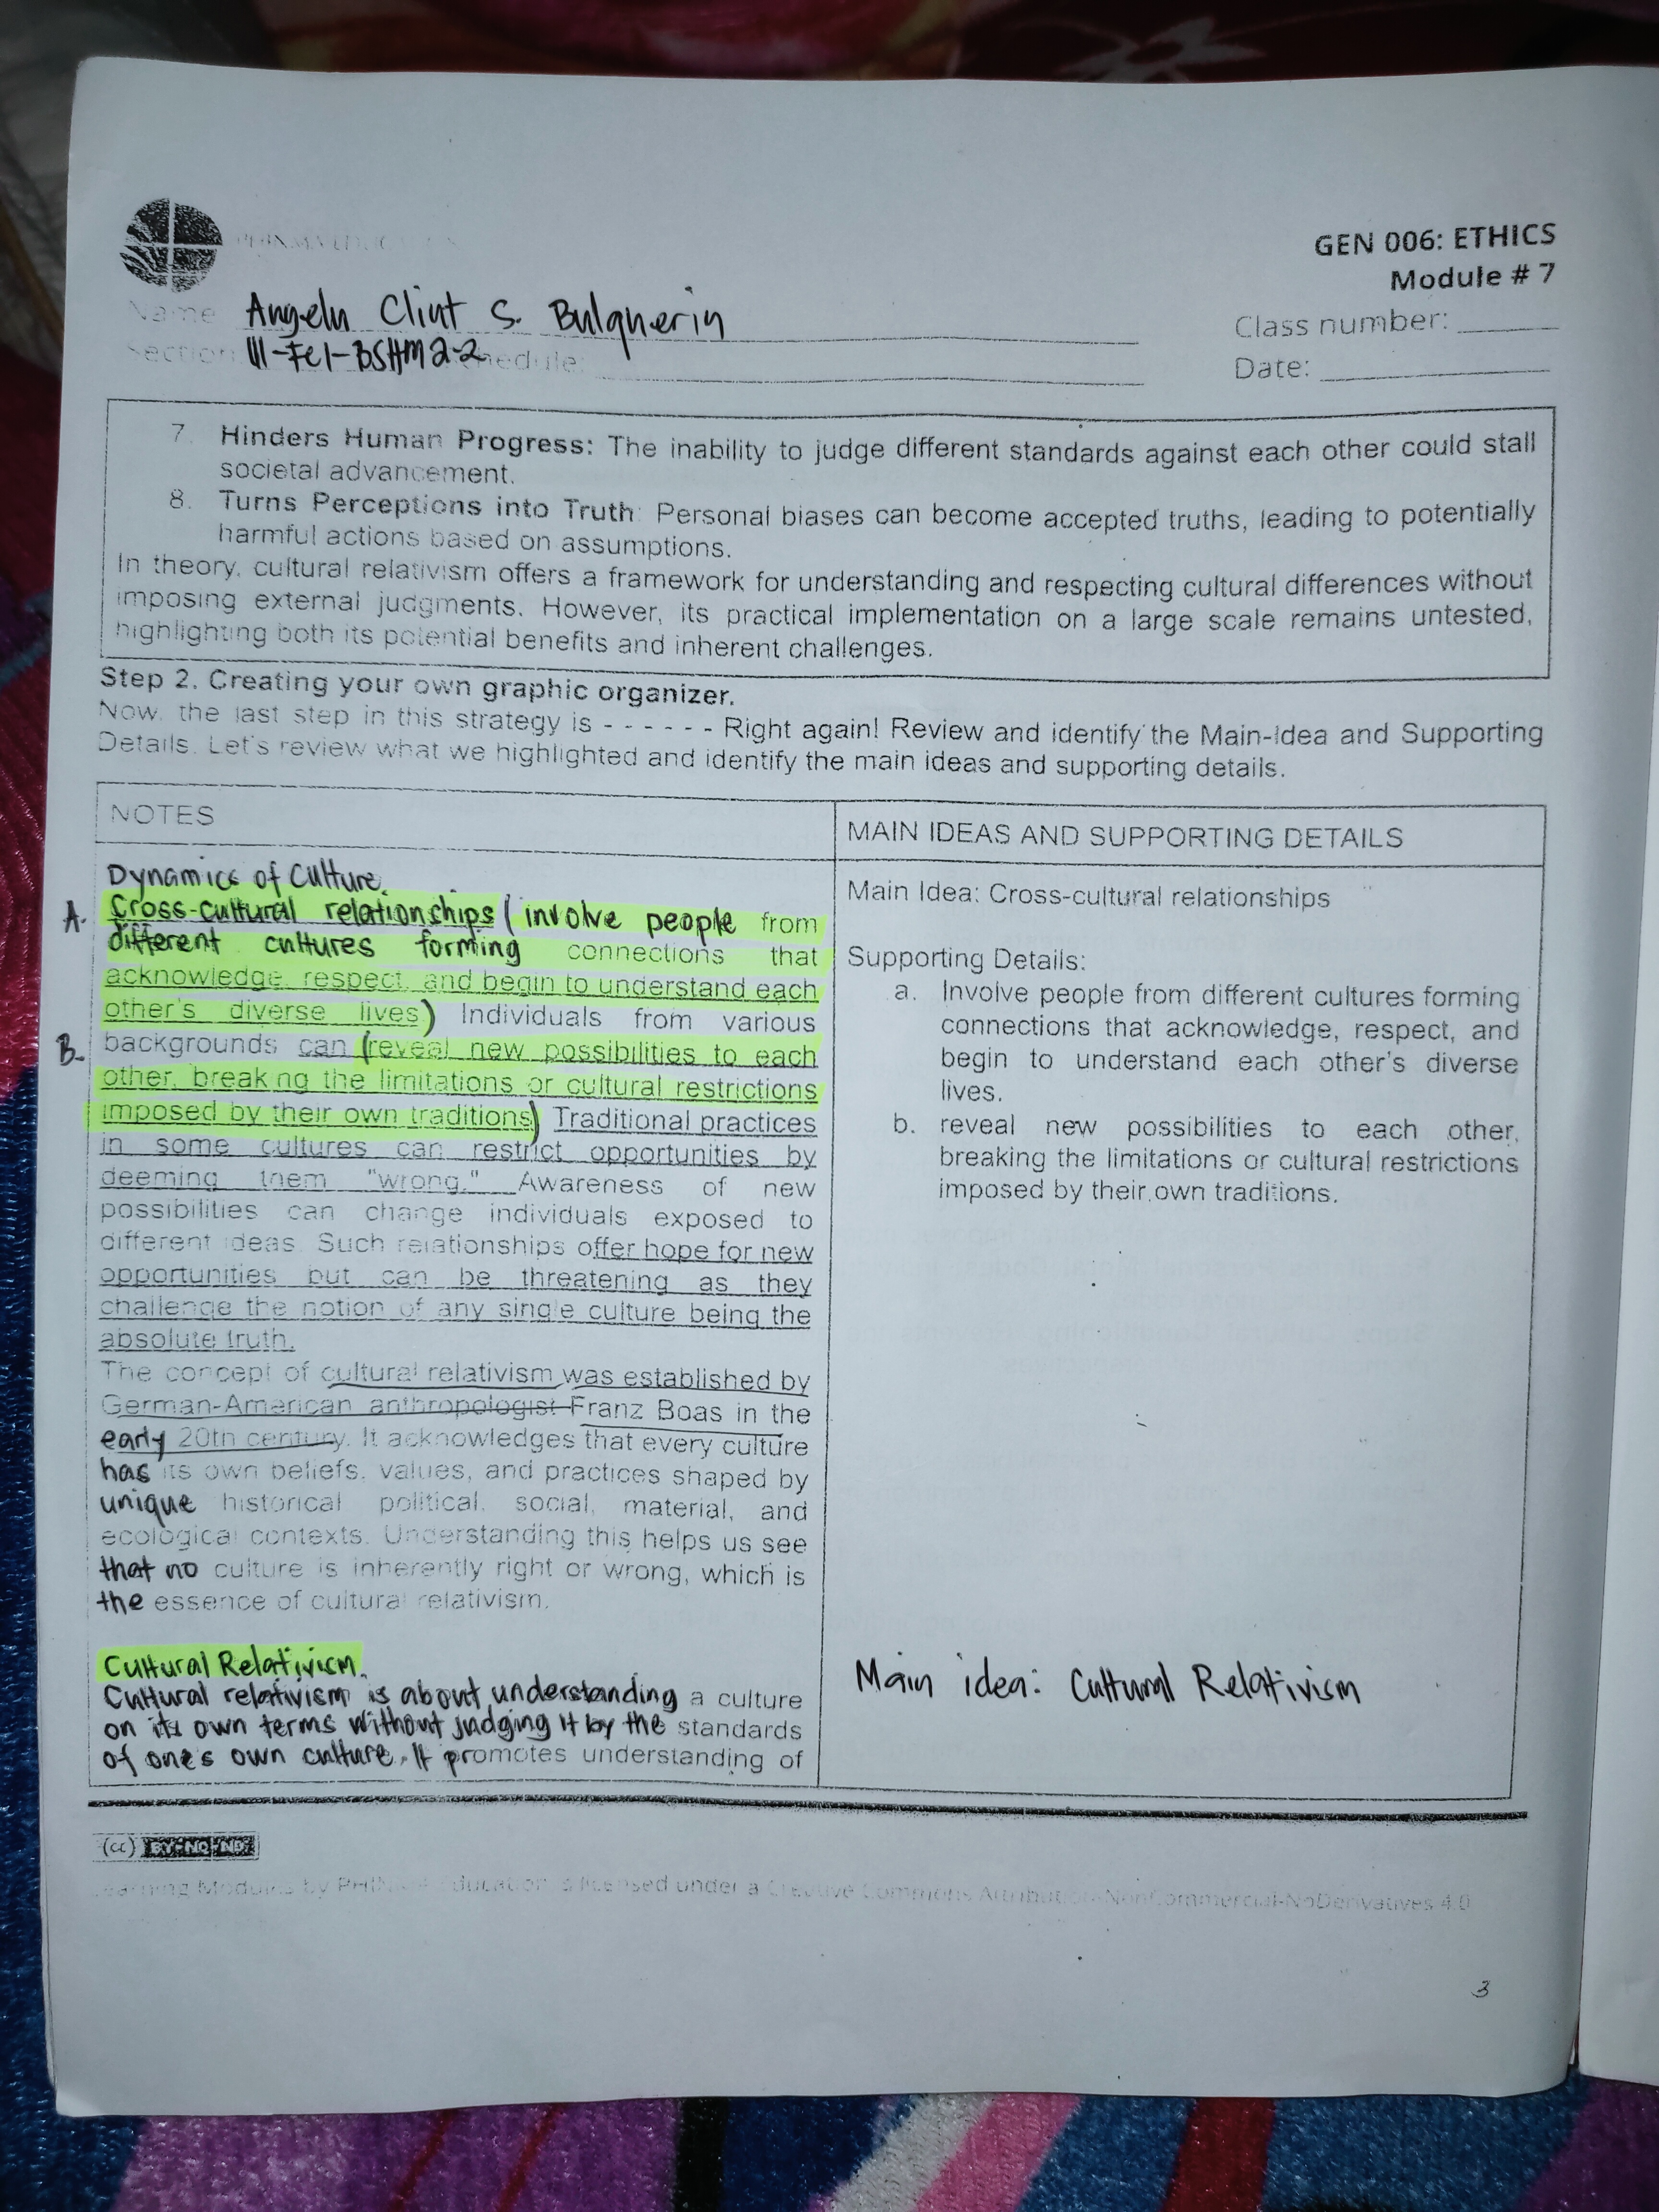 PHINMA EDUCATION
GEN 006: ETHICS
Module # 7
Name Angeln Clint S. Bulquerin
Class number:
Section III-FC1-BSHM 2-2 schedule:
Date:
7. Hinders Human Progress: The inability to judge different standards against each other could stall
societal advancement.
8. Turns Perceptions into Truth: Personal biases can become accepted truths, leading to potentially
harmful actions based on assumptions.
In theory, cultural relativism offers a framework for understanding and respecting cultural differences without
imposing external judgments. However, its practical implementation on a large scale remains untested,
highlighting both its potential benefits and inherent challenges.
Step 2. Creating your own graphic organizer.
Now, the last step in this strategy is - - - - - - Right again! Review and identify the Main-Idea and Supporting
Details. Let's review what we highlighted and identify the main ideas and supporting details.
NOTES
Dynamics of Culture.
A. Cross-cultural relationships (involve people from
different cultures forming connections that
acknowledge, respect, and begin to understand each
other's diverse lives) Individuals from various
B. backgrounds can (reveal new possibilities to each
other, breaking the limitations or cultural restrictions
imposed by their own traditions) Traditional practices
in some cultures can restrict opportunities by
deeming them "wrong." Awareness of new
possibilities can change individuals exposed to
different ideas. Such relationships offer hope for new
opportunities but can be threatening as they
challenge the notion of any single culture being the
absolute truth.
The concept of cultural relativism was established by
German-American anthropologist Franz Boas in the
early 20th century. It acknowledges that every culture
has its own beliefs, values, and practices shaped by
unique historical, political, social, material, and
ecological contexts. Understanding this helps us see
that no culture is inherently right or wrong, which is
the essence of cultural relativism.
Cultural Relativism.
Cultural relativism is about understanding a culture
on its own terms without judging it by the standards
of one's own culture. It promotes understanding of
MAIN IDEAS AND SUPPORTING DETAILS
Main Idea: Cross-cultural relationships
Supporting Details:
a. Involve people from different cultures forming
connections that acknowledge, respect, and
begin to understand each other's diverse
lives.
b. reveal new possibilities to each other,
breaking the limitations or cultural restrictions
imposed by their own traditions.
Main idea: Cultural Relativism
(cc) BY-NC-ND
Learning Modules by PHINMA Education is licensed under a Creative Commons Attribution-NonCommercial-NoDerivatives 4.0
3